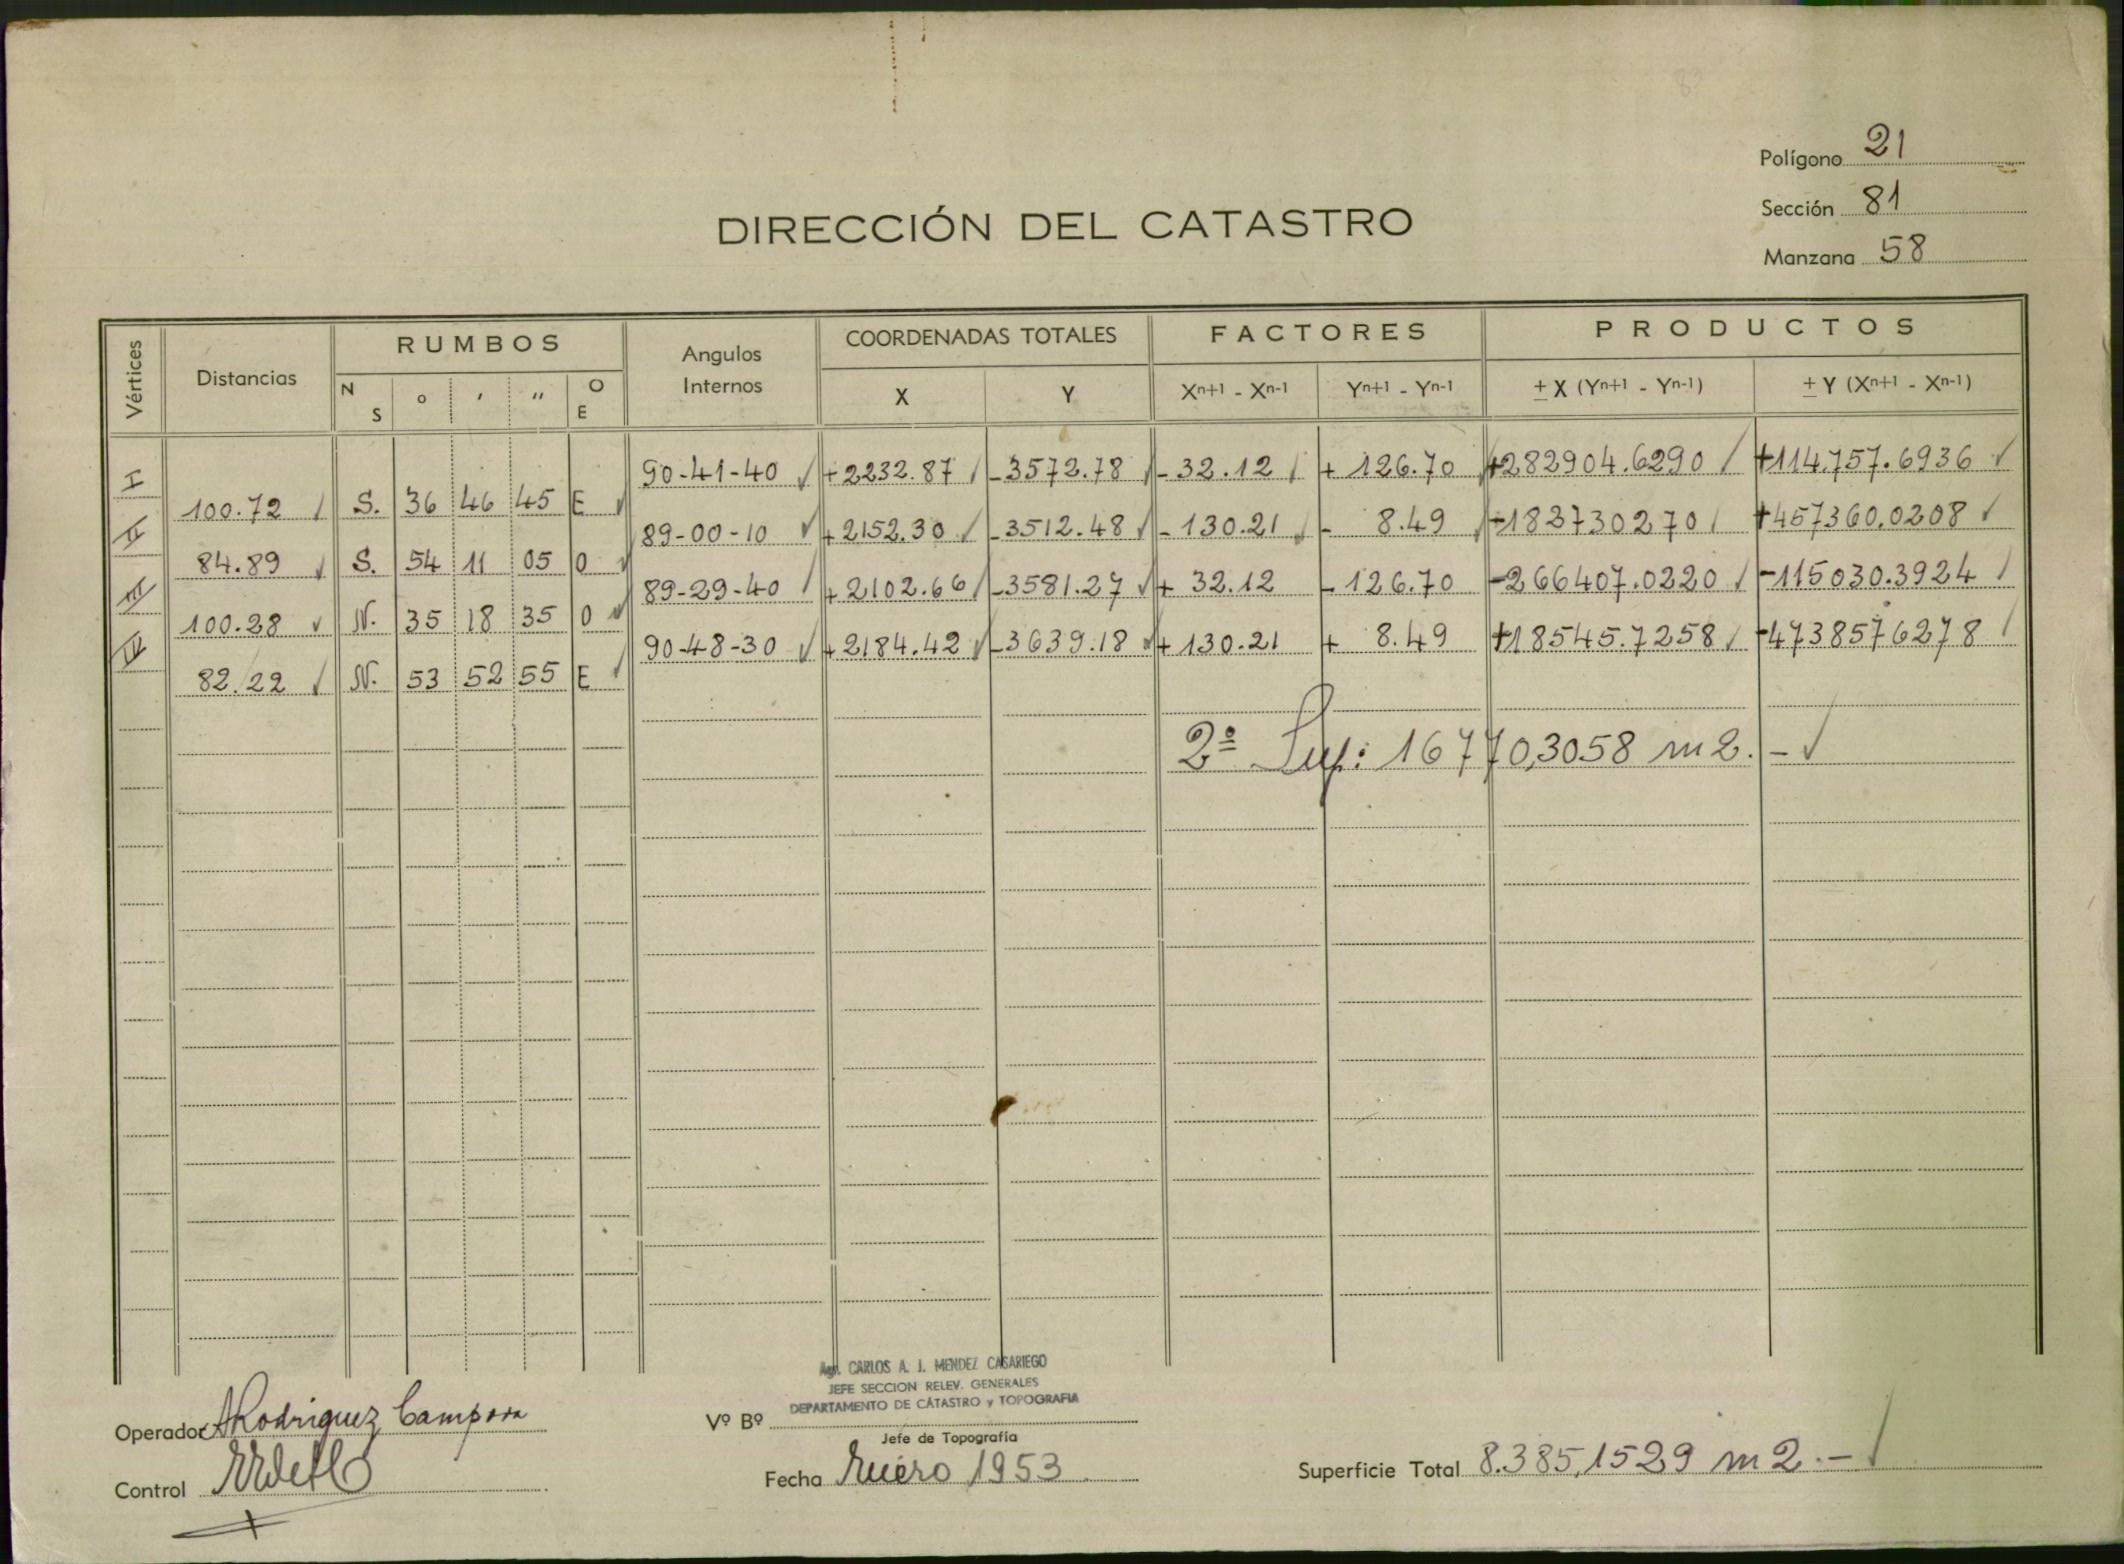 Polígono 21
Sección 81
Manzana 58
DIRECCIÓN DEL CATASTRO
Vértices Distancias RUMBOS Angulos Internos COORDENADAS TOTALES FACTORES PRODUCTOS
N S o ' '' O E X Y Xn+1 - Xn-1 Yn+1 - Yn-1 ± X (Yn+1 - Yn-1) ± Y (Xn+1 - Xn-1)
I 90-41-40 +2232.87 -3572.78 -32.12 + 126.70 +282904.6290 +114.757.6936
100.72 S. 36 46 45 E
II 89-00-10 +2152.30 -3512.48 -130.21 - 8.49 -182730270 +457360.0208
84.89 S. 54 11 05 O
III 89-29-40 +2102.66 -3581.27 + 32.12 -126.70 -266407.0220 -115030.3924
100.28 N. 35 18 35 O
IV 90-48-30 +2184.42 -3639.18 +130.21 + 8.49 +18545.7258 -4738576278
82.22 N. 53 52 55 E
2º Sup: 16770,3058 m2.-
Agr. CARLOS A. J. MENDEZ CASARIEGO
JEFE SECCION RELEV. GENERALES
DEPARTAMENTO DE CATASTRO y TOPOGRAFIA
Operador ARodriguez Campora
Vº Bº
Jefe de Topografía
Control
Fecha Enero 1953
Superficie Total 8.385,1529 m2.-